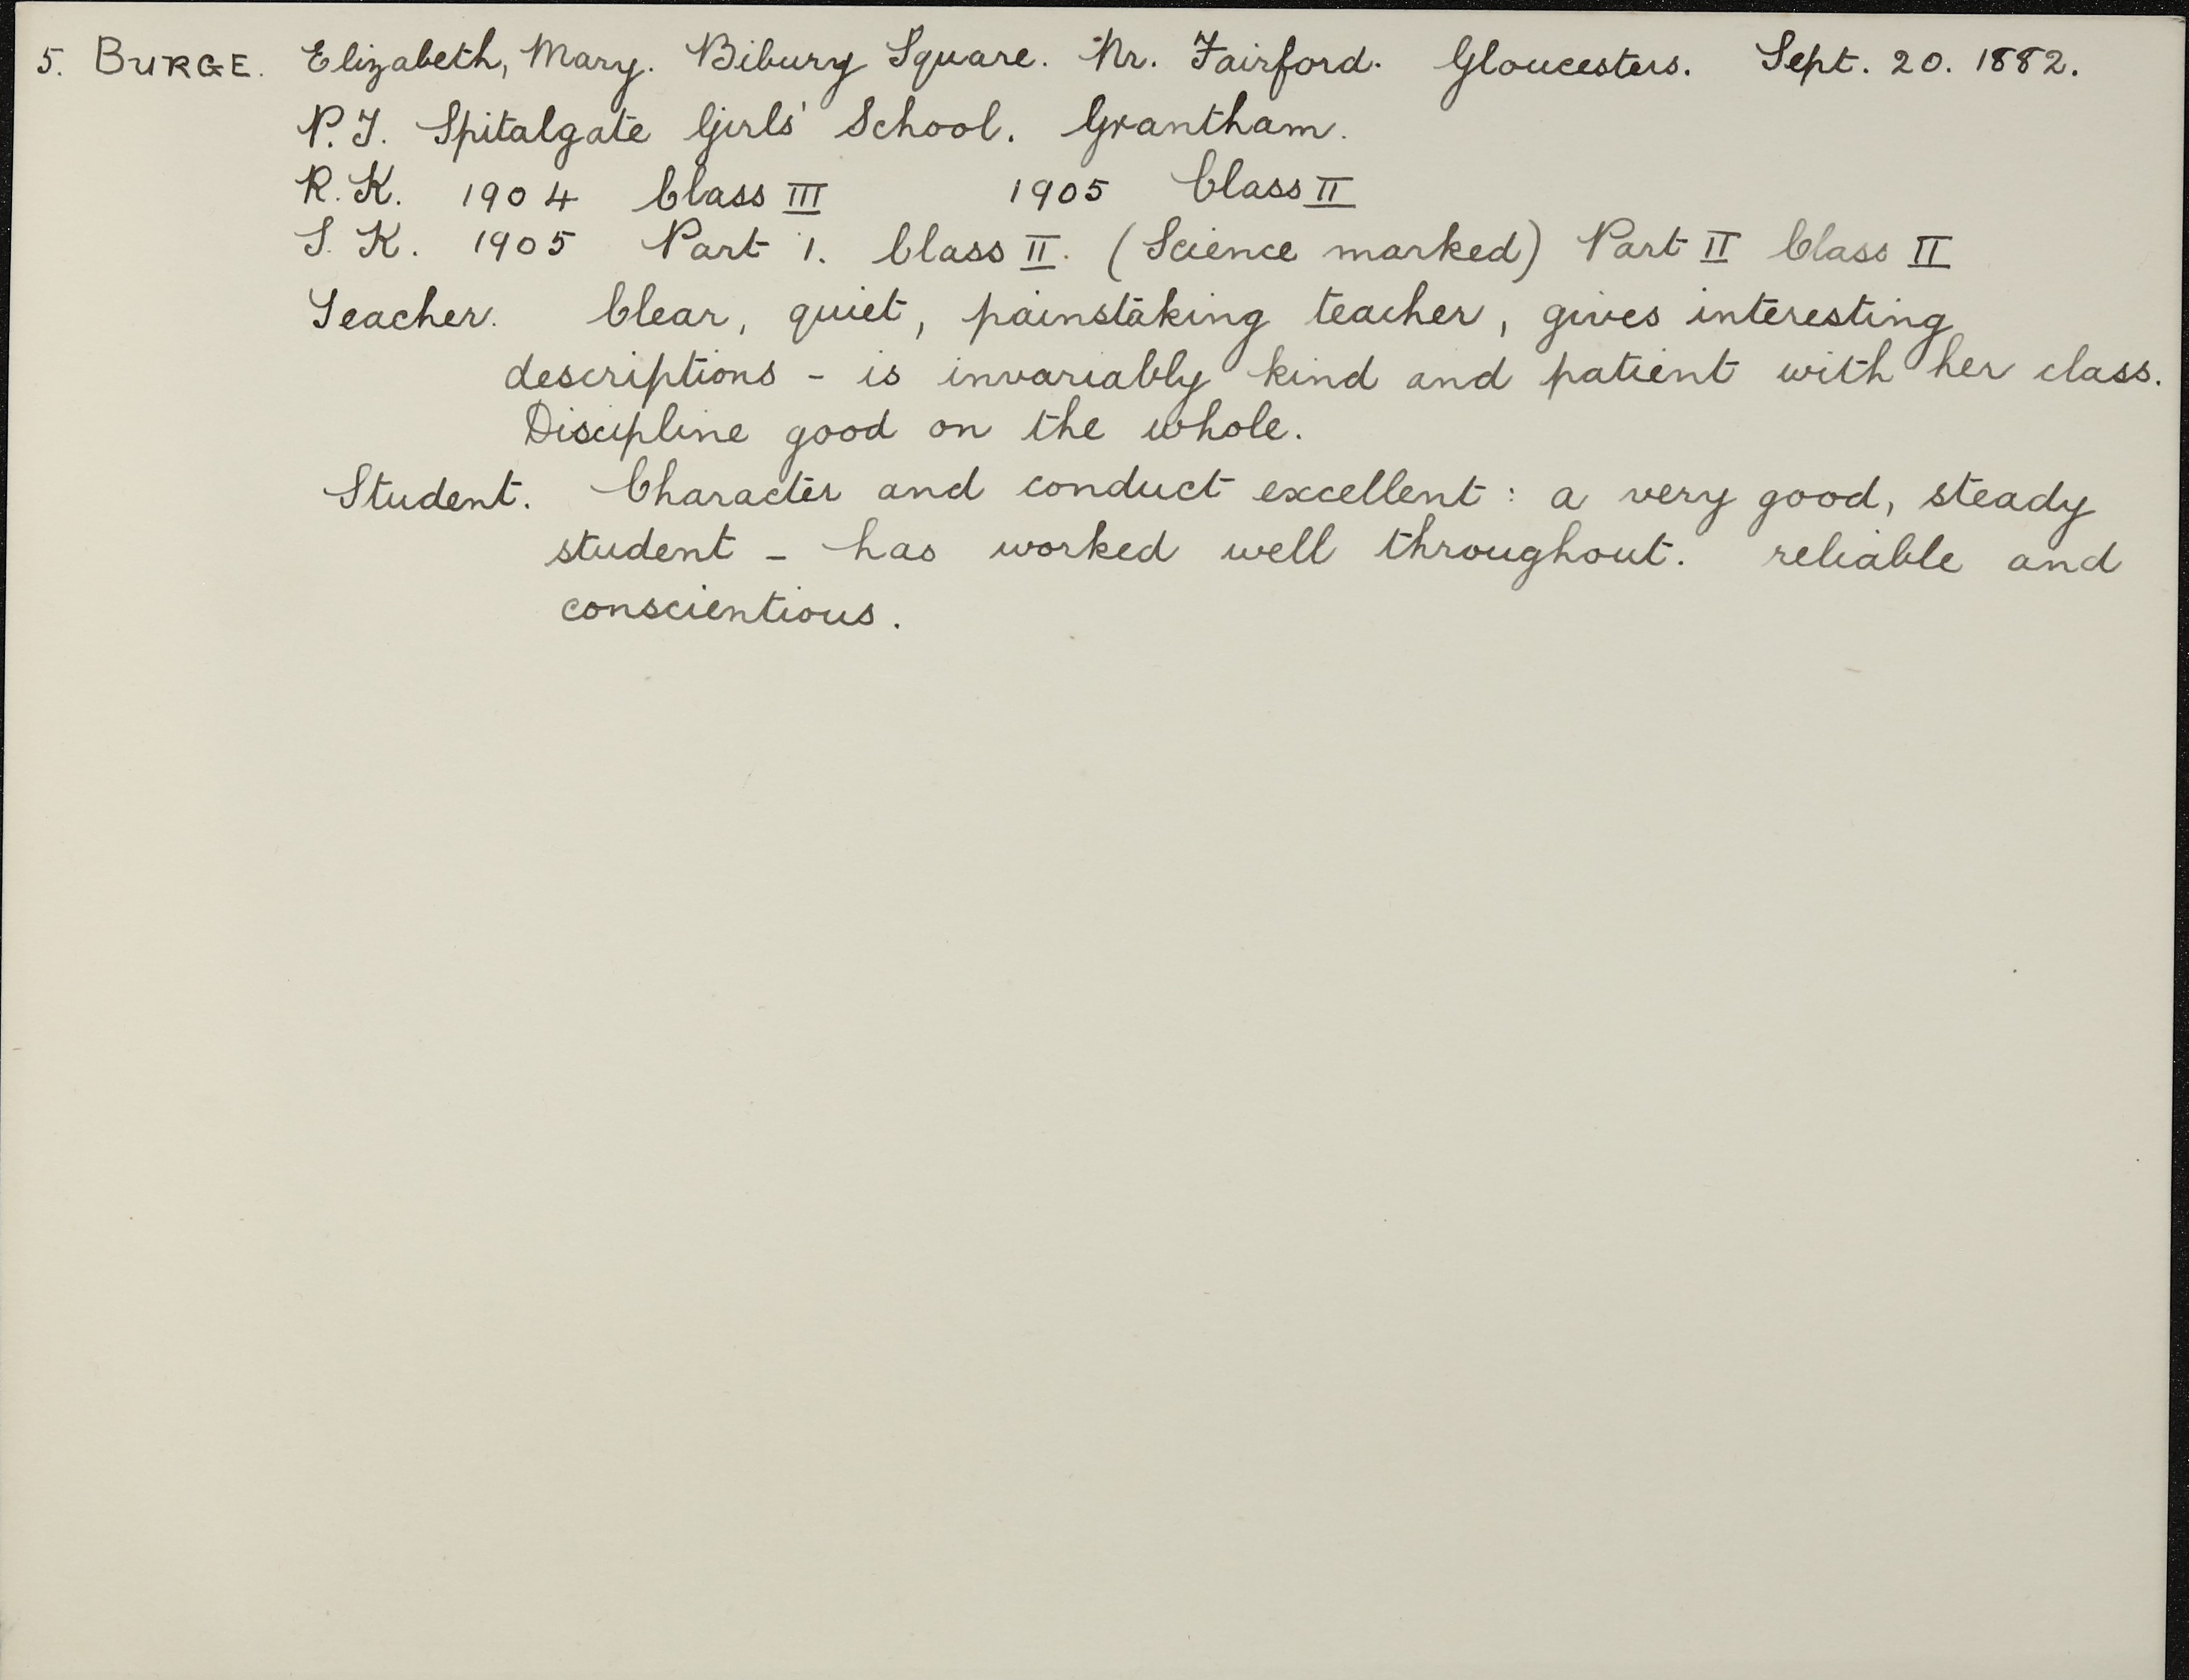 5. BURGE. Elizabeth, Mary. Bibury Square. Nr. Fairford. Gloucesters. Sept. 20. 1882.
P.T. Spitalgate Girls' School. Grantham.
R.K. 1904 Class III 1905 Class II
S.K. 1905 Part 1. Class II. (Science marked) Part II Class II
Teacher. Clear, quiet, painstaking teacher, gives interesting
descriptions - is invariably kind and patient with her class.
Discipline good on the whole.
Student. Character and conduct excellent: a very good, steady
student - has worked well throughout. reliable and
conscientious.